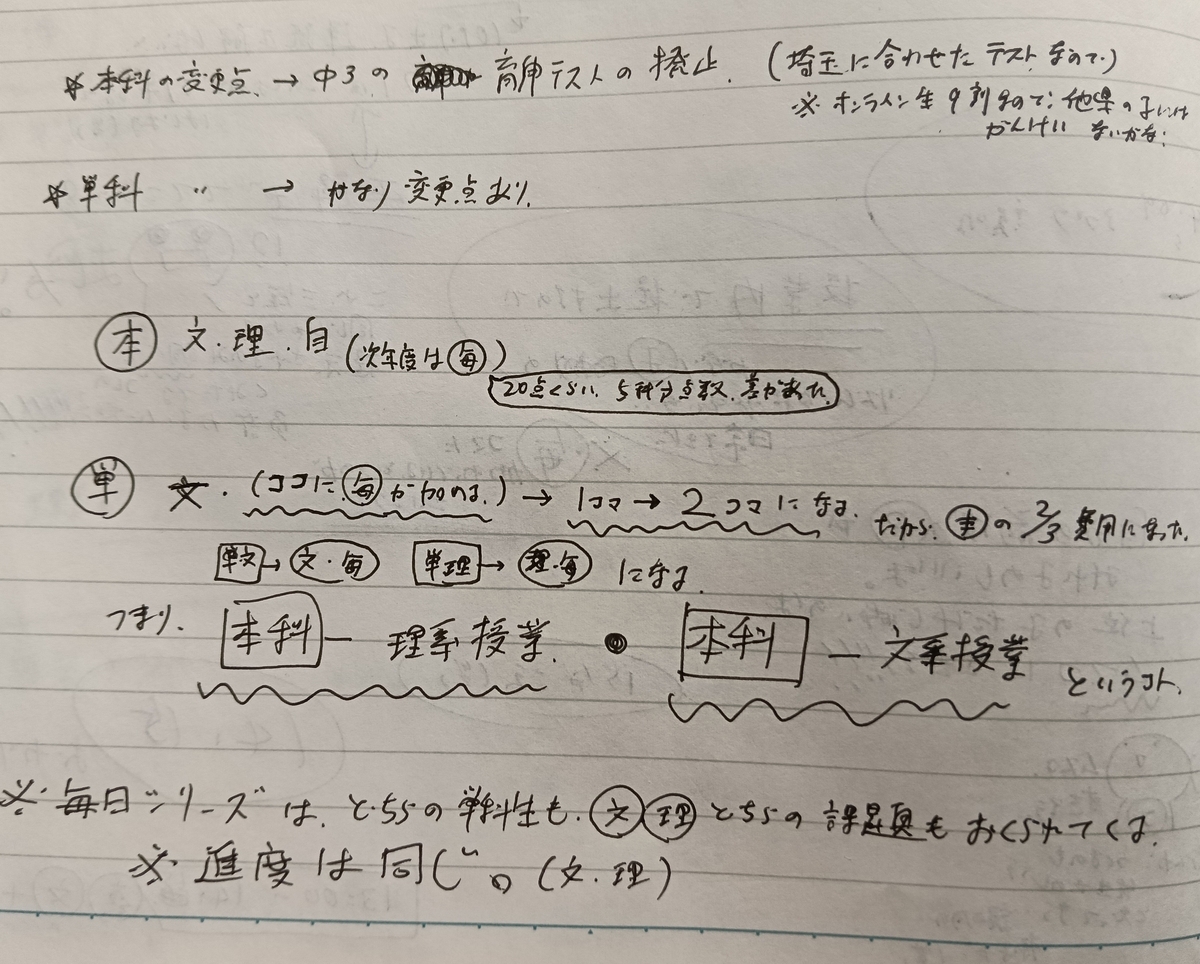 ☆本科の変更点 → 中3の 育伸テストの廃止. (埼玉に合わせた テスト なので)
※ オンライン生9割なので; 他県の子には
かんけい ないかな;
☆単科 〃 → かなり 変更点あり.
本 文・理・自 (次年度は毎)
20点くらい. 5科分点数. 差があった
単 文. (ココに毎が加わる.) → 1コマ → 2コマになる. だから. 本の 2/3 費用になった.
単文→文・毎 単理→理・毎 になる
つまり. 本科 − 理系授業. ● 本科 − 文系授業 というコト.
※毎日シリーズは、どちらの単科生も. 文理 どちらの課題もおくられてくる.
※進度は同じ。(文・理)